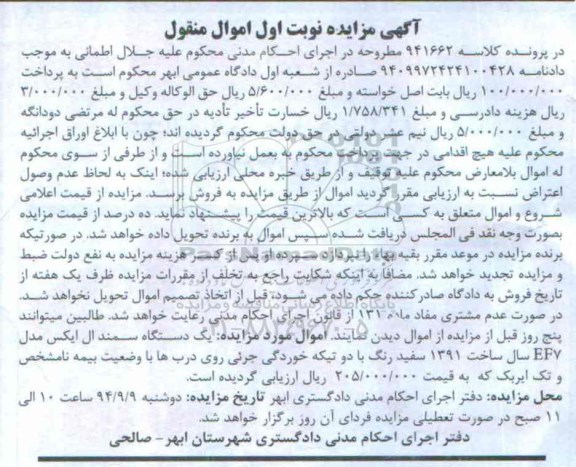 آگهی مزایده نوبت اول اموال منقول
در پرونده کلاسه ۹۴۱۶۶۲ مطروحه در اجرای احکام مدنی محکوم علیه جلال اطمانی به موجب
دادنامه ۹۴۰۹۹۷۲۴۲۴۱۰۰۴۲۸ صادره از شعبه اول دادگاه عمومی ابهر محکوم است به پرداخت
۱۰۰/۰۰۰/۰۰۰ ریال بابت اصل خواسته و مبلغ ۵/۶۰۰/۰۰۰ ریال حق الوکاله وکیل و مبلغ ۳/۰۰۰/۰۰۰
ریال هزینه دادرسی و مبلغ ۱/۷۵۸/۳۴۱ ریال خسارت تأخیر تأدیه در حق محکوم له مرتضی دودانگه
و مبلغ ۵/۰۰۰/۰۰۰ ریال نیم عشر دولتی در حق دولت محکوم گردیده اند؛ چون با ابلاغ اوراق اجرائیه
محکوم علیه هیچ اقدامی در جهت پرداخت محکوم به بعمل نیاورده است و از طرفی از سوی محکوم
له اموال بلامعارض محکوم علیه توقیف و از طریق خبره محلی ارزیابی شده؛ اینک به لحاظ عدم وصول
اعتراض نسبت به ارزیابی مقرر گردید اموال از طریق مزایده به فروش برسد. مزایده از قیمت اعلامی
شروع و اموال متعلق به کسی است که بالاترین قیمت را پیشنهاد نماید. ده درصد از قیمت مزایده
بصورت وجه نقد فی المجلس دریافت شده سپس اموال به برنده تحویل داده خواهد شد. در صورتیکه
برنده مزایده در موعد مقرر بقیه بهاء را نپردازد سپرده او پس از کسر هزینه مزایده به نفع دولت ضبط
و مزایده تجدید خواهد شد. مضافا به اینکه شکایت راجع به تخلف از مقررات مزایده ظرف یک هفته از
تاریخ فروش به دادگاه صادرکننده حکم داده می شود، قبل از اتخاذ تصمیم اموال تحویل نخواهد شد.
در صورت عدم مشتری مفاد ماده ۱۳۱ از قانون اجرای احکام مدنی رعایت خواهد شد. طالبین میتوانند
پنج روز قبل از مزایده از اموال دیدن نمایند. اموال مورد مزایده: یک دستگاه سمند ال ایکس مدل
EF۷ سال ساخت ۱۳۹۱ سفید رنگ با دو تیکه خوردگی جزئی روی درب ها با وضعیت بیمه نامشخص
و تک ایربک که به قیمت ۲۰۵/۰۰۰/۰۰۰ ریال ارزیابی گردیده است.
محل مزایده: دفتر اجرای احکام مدنی دادگستری ابهر تاریخ مزایده: دوشنبه ۹۴/۹/۹ ساعت ۱۰ الی
۱۱ صبح در صورت تعطیلی مزایده فردای آن روز برگزار خواهد شد.
دفتر اجرای احکام مدنی دادگستری شهرستان ابهر- صالحی